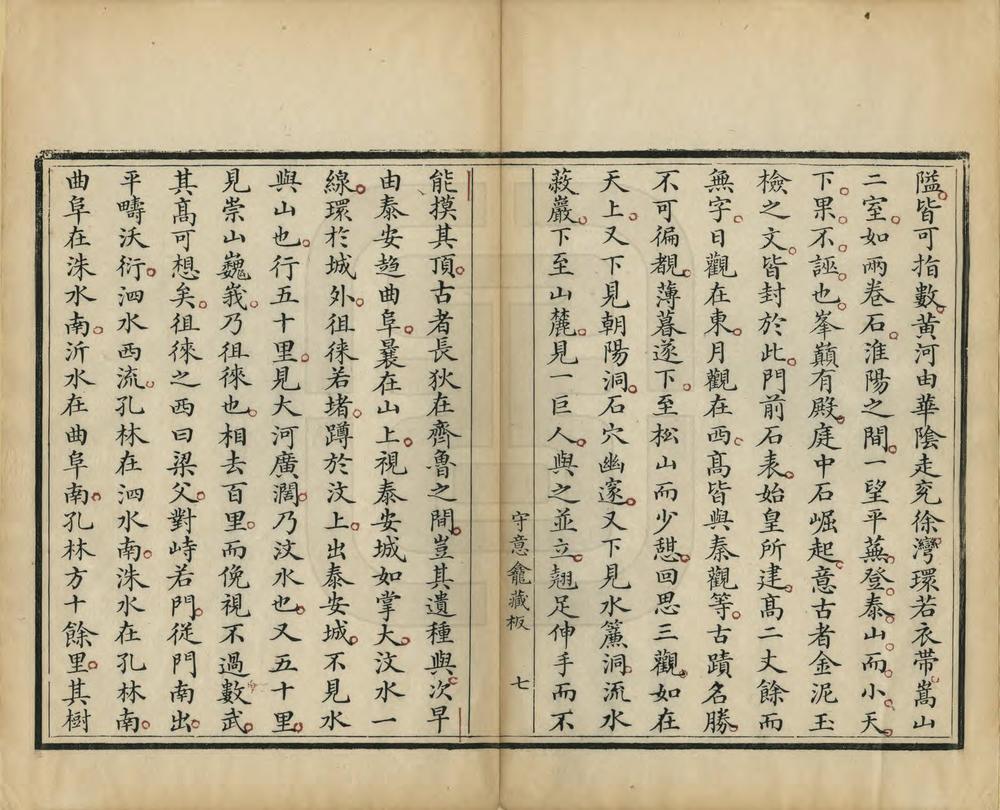 隘皆可指數黃河由華陰走兗徐灣環若衣帶嵩山
二室如兩卷石淮陽之間一望平蕪登泰山而小天
下果不誣也峯巔有殿庭中石崛起意古者金泥玉
檢之文皆封於此門前石表始皇所建高二丈餘而
無字日觀在東月觀在西高皆與秦觀等古蹟名勝
不可徧覩薄暮遂下至松山而少憇回思三觀如在
天上又下見朝陽洞石穴幽邃又下見水簾洞流水
蔽巖下至山麓見一巨人與之並立翹足伸手而不
守意龕藏板 七
能摸其頂古者長狄在齊魯之間豈其遺種與次早
由泰安趋曲阜曩在山上視泰安城如掌大汶水一
線環於城外徂徠若堵蹲於汶上出泰安城不見水
與山也行五十里見大河廣濶乃汶水也又五十里
見崇山巍峩乃徂徠也相去百里而俛視不過數武
其高可想矣徂徠之西曰梁父對峙若門從門南出
平疇沃衍泗水西流孔林在泗水南洙水在孔林南
曲阜在洙水南沂水在曲阜南孔林方十餘里其樹